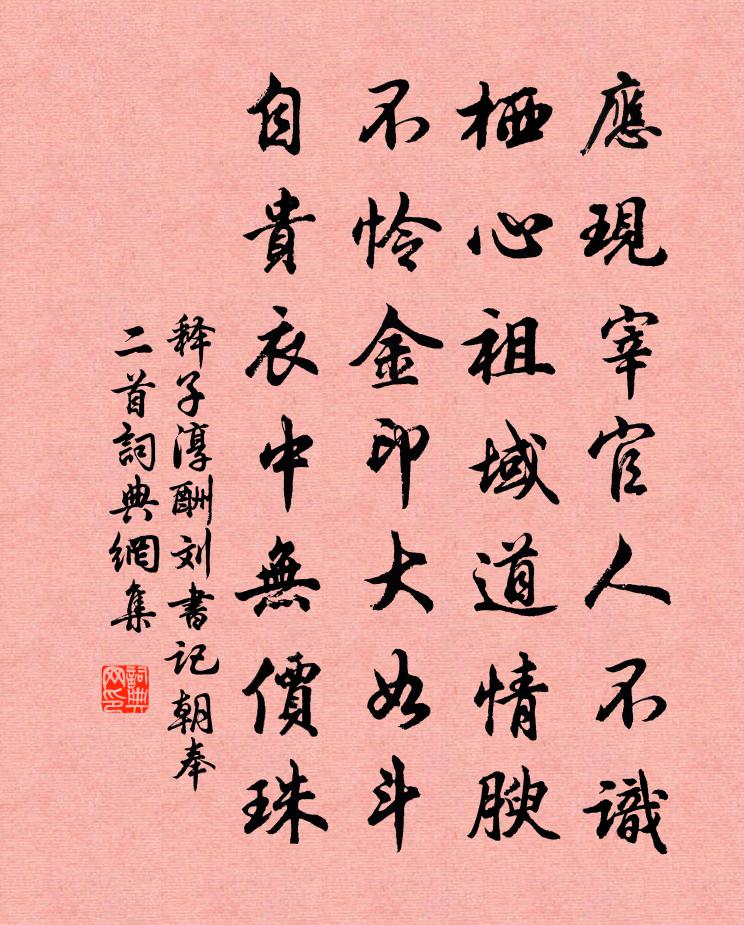 應現宰官人不識
栖心祖域道情腴
不怜金印大如斗
自貴衣中無價珠
释子淳酬刘書记朝奉
二首詞典網集
詞典网印